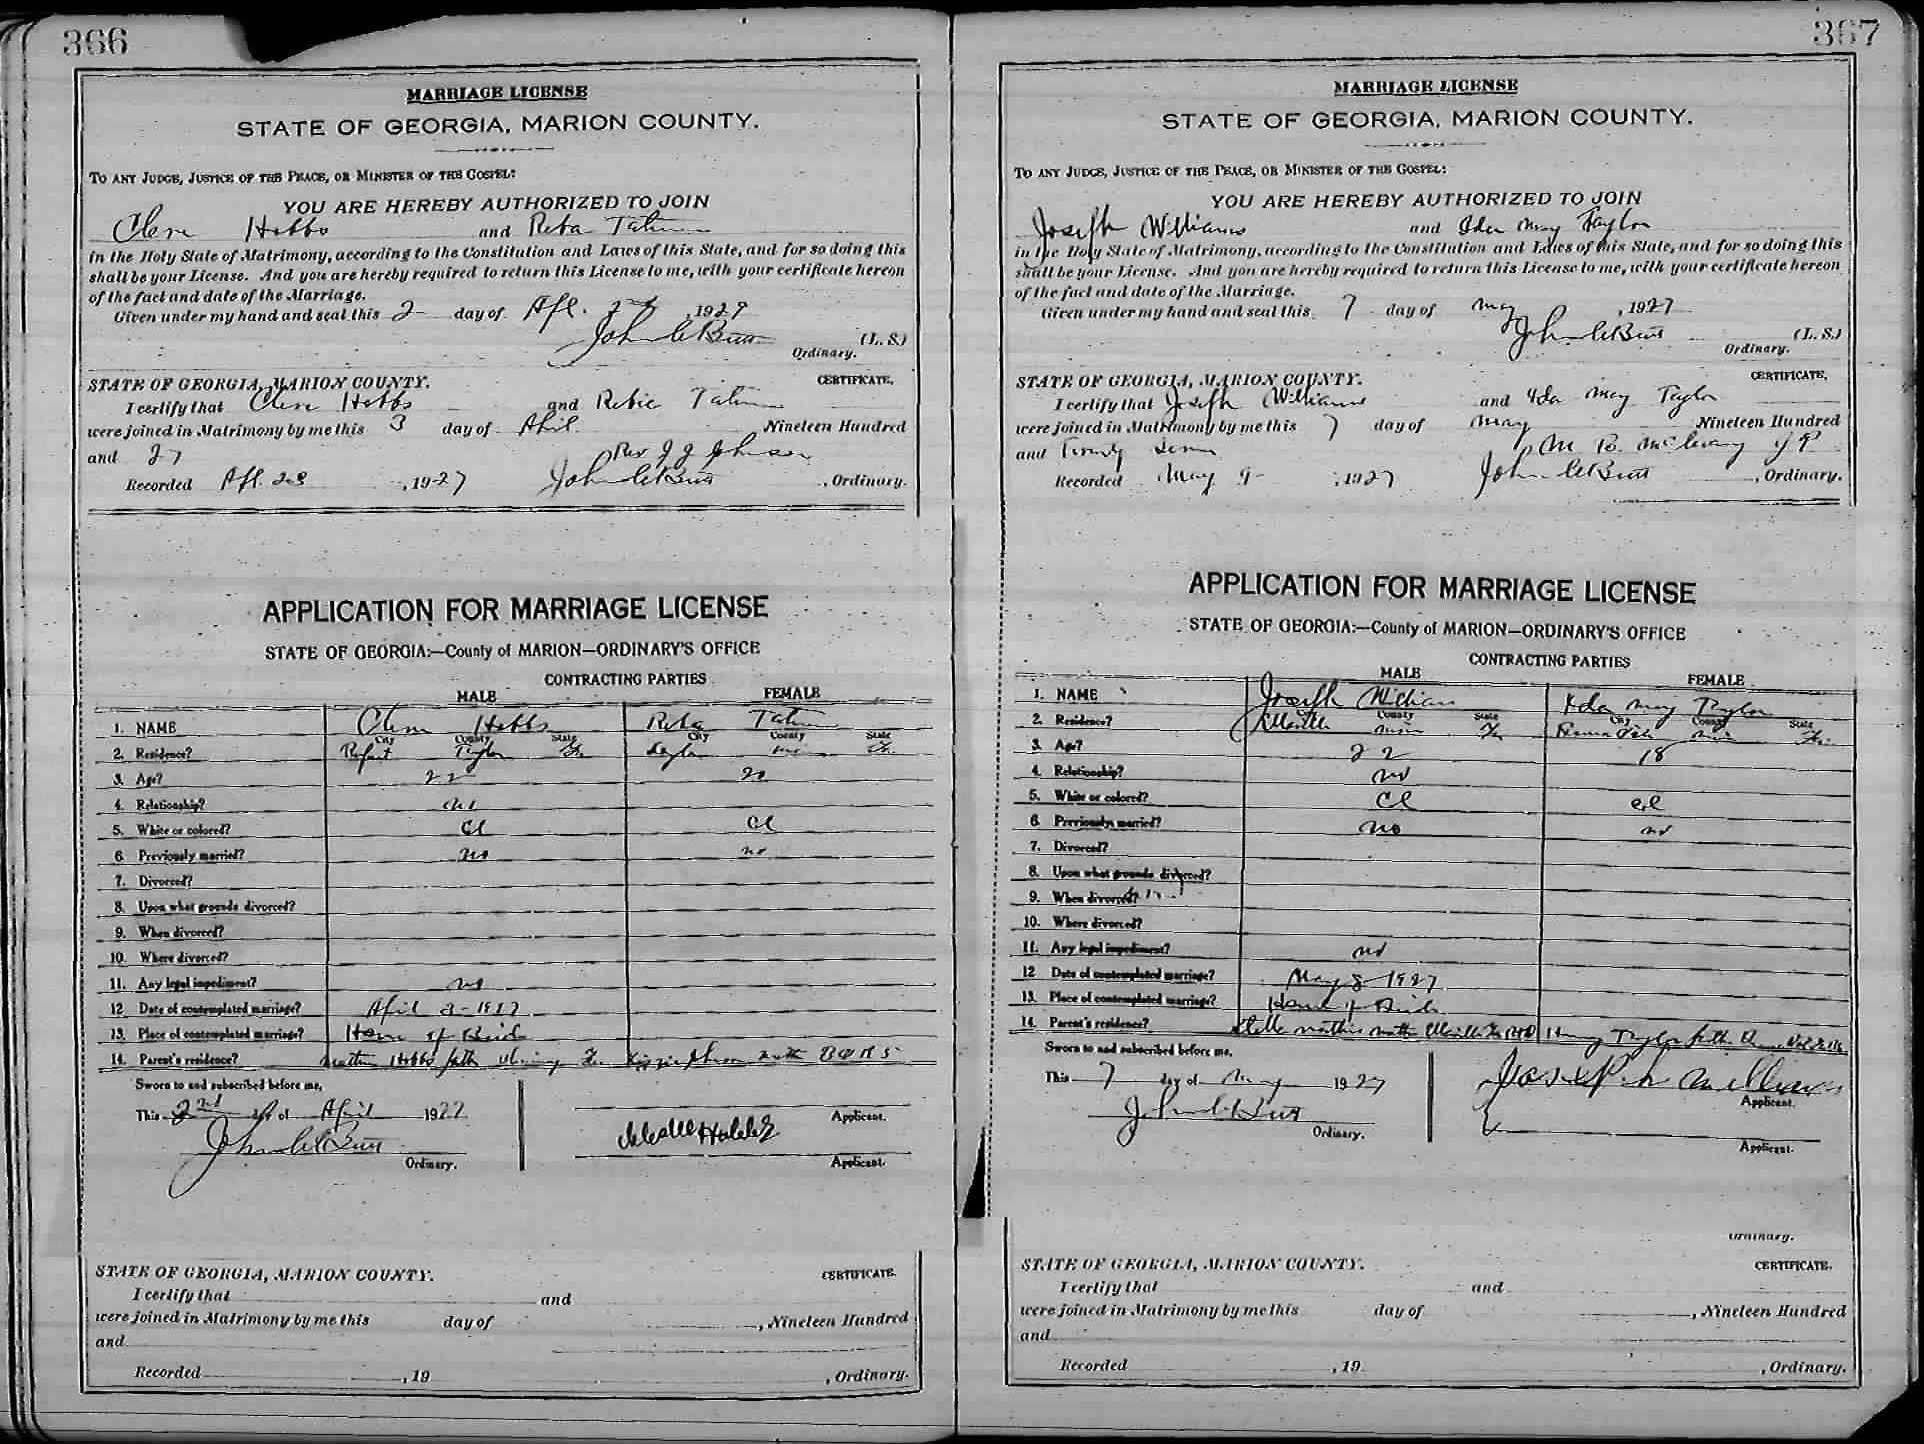 366
MARRIAGE LICENSE
STATE OF GEORGIA, MARION COUNTY.
TO ANY JUDGE, JUSTICE OF THE PEACE, OR MINISTER OF THE GOSPEL:
YOU ARE HEREBY AUTHORIZED TO JOIN
Cleve Hobbs and Reba Tatum
in the Holy State of Matrimony, according to the Constitution and Laws of this State, and for so doing this
shall be your License. And you are hereby required to return this License to me, with your certificate hereon
of the fact and date of the Marriage.
Given under my hand and seal this 2 day of Apl. 2nd, 1927
John C Butt (L. S.)
Ordinary.
STATE OF GEORGIA, MARION COUNTY. CERTIFICATE.
I certify that Cleve Hobbs and Rebie Tatum
were joined in Matrimony by me this 3 day of April Nineteen Hundred
and 27 Rev J J Johnson
Recorded Apl. 28, 1927 John C Butt, Ordinary.
APPLICATION FOR MARRIAGE LICENSE
STATE OF GEORGIA:—County of MARION—ORDINARY'S OFFICE
CONTRACTING PARTIES
MALE FEMALE
1. NAME Cleve Hobbs Reba Tatum
City County State City County State
2. Residence? Taylor Ga Ga.
3. Age? 22 20
4. Relationship? no
5. White or colored? Cl Cl
6. Previously married? no no
7. Divorced?
8. Upon what grounds divorced?
9. When divorced?
10. Where divorced?
11. Any legal impediment? no
12. Date of contemplated marriage? April 3-1927
13. Place of contemplated marriage? Home of Bride
14. Parent's residence? Hobbs fath Ga
Sworn to and subscribed before me,
This 2nd day of April 1927
Applicant.
John C Butt
Ordinary. Applicant.
STATE OF GEORGIA, MARION COUNTY. CERTIFICATE.
I certify that and
were joined in Matrimony by me this day of , Nineteen Hundred
and
Recorded , 19 , Ordinary.
367
MARRIAGE LICENSE
STATE OF GEORGIA, MARION COUNTY.
TO ANY JUDGE, JUSTICE OF THE PEACE, OR MINISTER OF THE GOSPEL:
YOU ARE HEREBY AUTHORIZED TO JOIN
Joseph Williams and Ida May Taylor
in the Holy State of Matrimony, according to the Constitution and Laws of this State, and for so doing this
shall be your License. And you are hereby required to return this License to me, with your certificate hereon
of the fact and date of the Marriage.
Given under my hand and seal this 7 day of May, 1927
John C Butt (L. S.)
Ordinary.
STATE OF GEORGIA, MARION COUNTY. CERTIFICATE.
I certify that Joseph Williams and Ida May Taylor
were joined in Matrimony by me this 7 day of May Nineteen Hundred
and Twenty Seven M B McCleary J P
Recorded May 9, 1927 John C Butt, Ordinary.
APPLICATION FOR MARRIAGE LICENSE
STATE OF GEORGIA:—County of MARION—ORDINARY'S OFFICE
CONTRACTING PARTIES
MALE FEMALE
1. NAME Joseph Williams Ida May Taylor
County State City County State
2. Residence? Ga Ga.
3. Age? 22 18
4. Relationship? no
5. White or colored? Cl Cl
6. Previously married? no no
7. Divorced?
8. Upon what grounds divorced?
9. When divorced?
10. Where divorced?
11. Any legal impediment? no
12 Date of contemplated marriage? May 8-1927
13. Place of contemplated marriage? Home of Bride
14. Parent's residence? Mathis Henry Taylor fath
Sworn to and subscribed before me,
This 7 day of May 1927 Joseph Williams
Applicant.
John C Butt
Ordinary.
Applicant.
Ordinary.
STATE OF GEORGIA, MARION COUNTY. CERTIFICATE.
I certify that and
were joined in Matrimony by me this day of , Nineteen Hundred
and
Recorded , 19 , Ordinary.